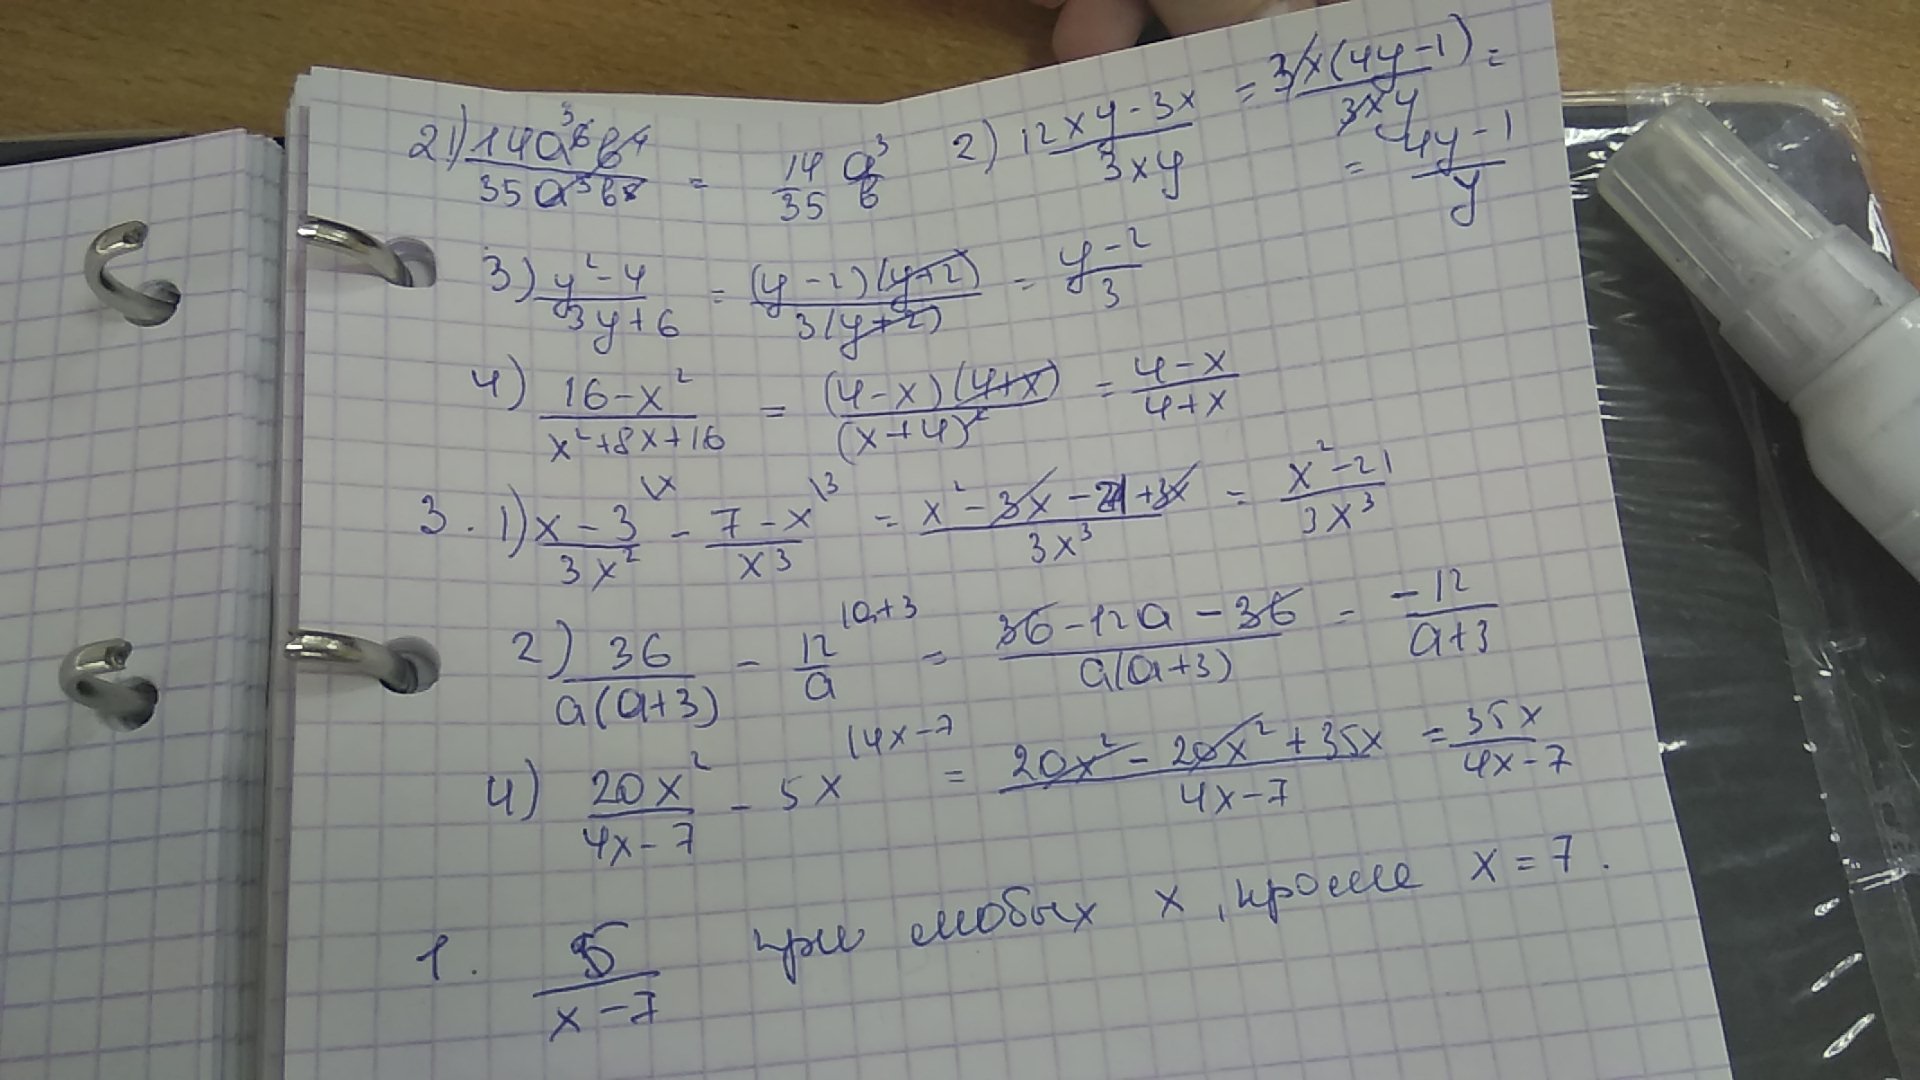 21) 14a⁶³b⁴/35a³b⁵ = 14/35 a³/b 2) 12xy-3x/3xy = 3x(4y-1)/3xy =
= 4y-1/y
3) y²-4/3y+6 = (y-2)(y+2)/3(y+2) = y-2/3
4) 16-x²/x²+8x+16 = (4-x)(4+x)/(x+4)² = 4-x/4+x
3. 1) x-3/3x² \x - 7-x/x3 \3 = x²-3x-21+3x/3x³ = x²-21/3x³
2) 36/a(a+3) - 12/a \a+3 = 36-12a-36/a(a+3) = -12/a+3
4) 20x²/4x-7 - 5x \4x-7 = 20x²-20x²+35x/4x-7 = 35x/4x-7
1. 5/x-7 при любых x, кроме x=7.